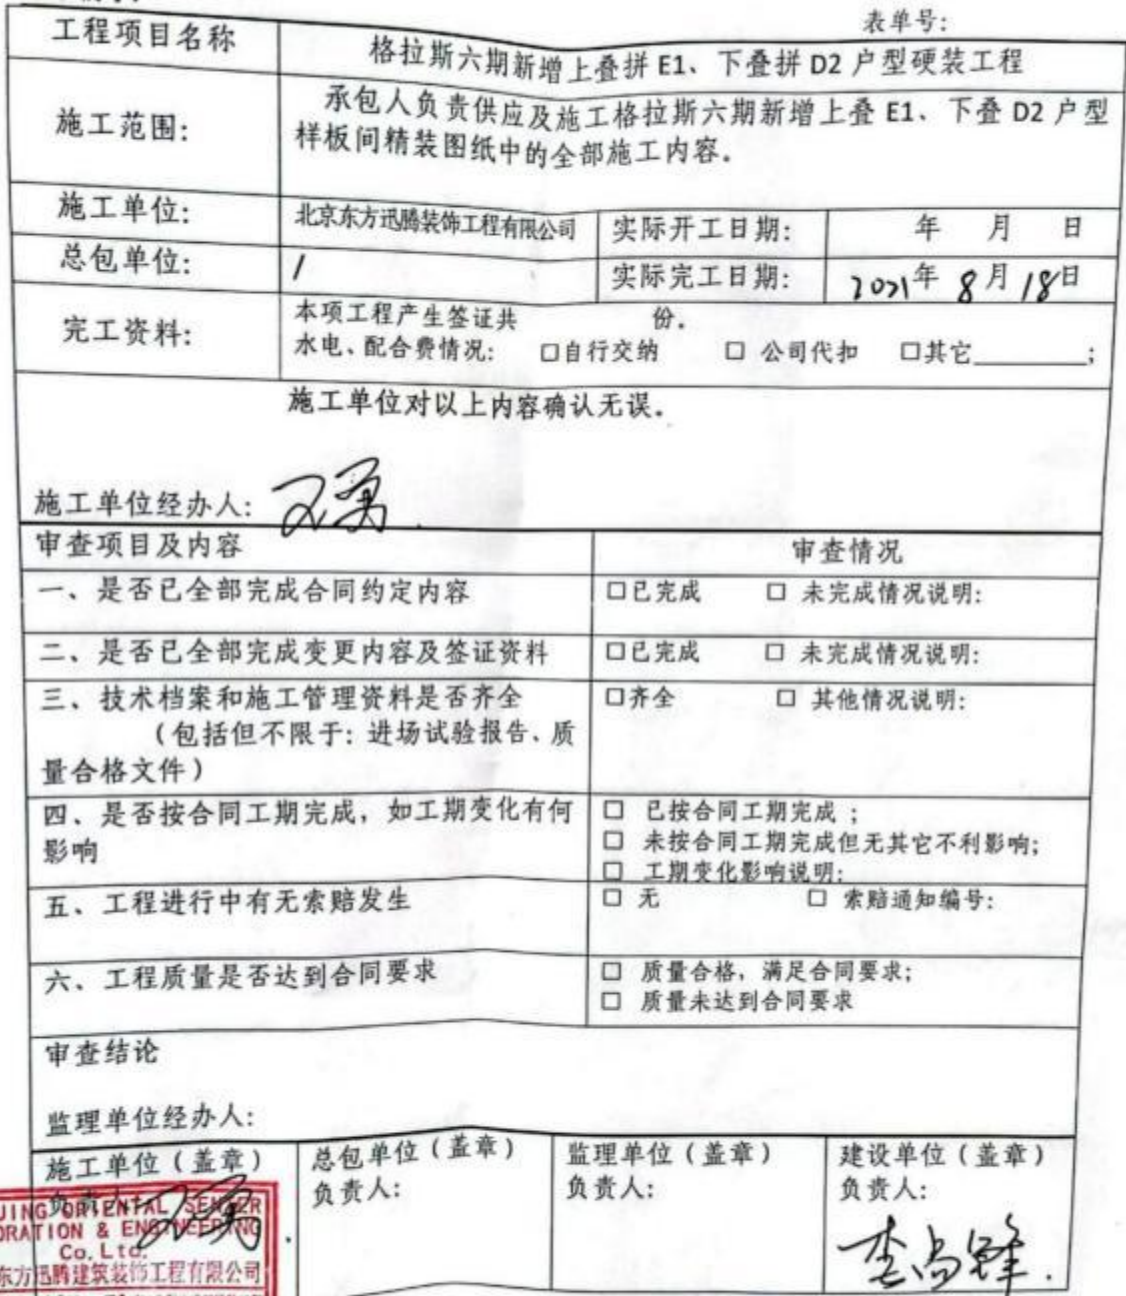 表单号:
工程项目名称
格拉斯六期新增上叠拼 E1、下叠拼 D2 户型硬装工程
施工范围:
承包人负责供应及施工格拉斯六期新增上叠 E1、下叠 D2 户型
样板间精装图纸中的全部施工内容。
施工单位:
北京东方迅腾装饰工程有限公司
实际开工日期:
年 月 日
总包单位:
/
实际完工日期:
2021年 8月 18日
完工资料:
本项工程产生签证共 份.
水电、配合费情况: □自行交纳 □ 公司代扣 □其它________;
施工单位对以上内容确认无误.
施工单位经办人:
审查项目及内容
审查情况
一、是否已全部完成合同约定内容
□已完成 □ 未完成情况说明:
二、是否已全部完成变更内容及签证资料
□已完成 □ 未完成情况说明:
三、技术档案和施工管理资料是否齐全
(包括但不限于: 进场试验报告、质
量合格文件)
□齐全 □ 其他情况说明:
四、是否按合同工期完成, 如工期变化有何
影响
□ 已按合同工期完成 ;
□ 未按合同工期完成但无其它不利影响;
□ 工期变化影响说明:
五、工程进行中有无索赔发生
□ 无 □ 索赔通知编号:
六、工程质量是否达到合同要求
□ 质量合格, 满足合同要求;
□ 质量未达到合同要求
审查结论
监理单位经办人:
施工单位(盖章)
负责人:
总包单位(盖章)
负责人:
监理单位(盖章)
负责人:
建设单位(盖章)
负责人:
李尚锋
JING ORIENTAL
ORATION & ENGINEERING
Co. Ltd.
东方迅腾建筑装饰工程有限公司